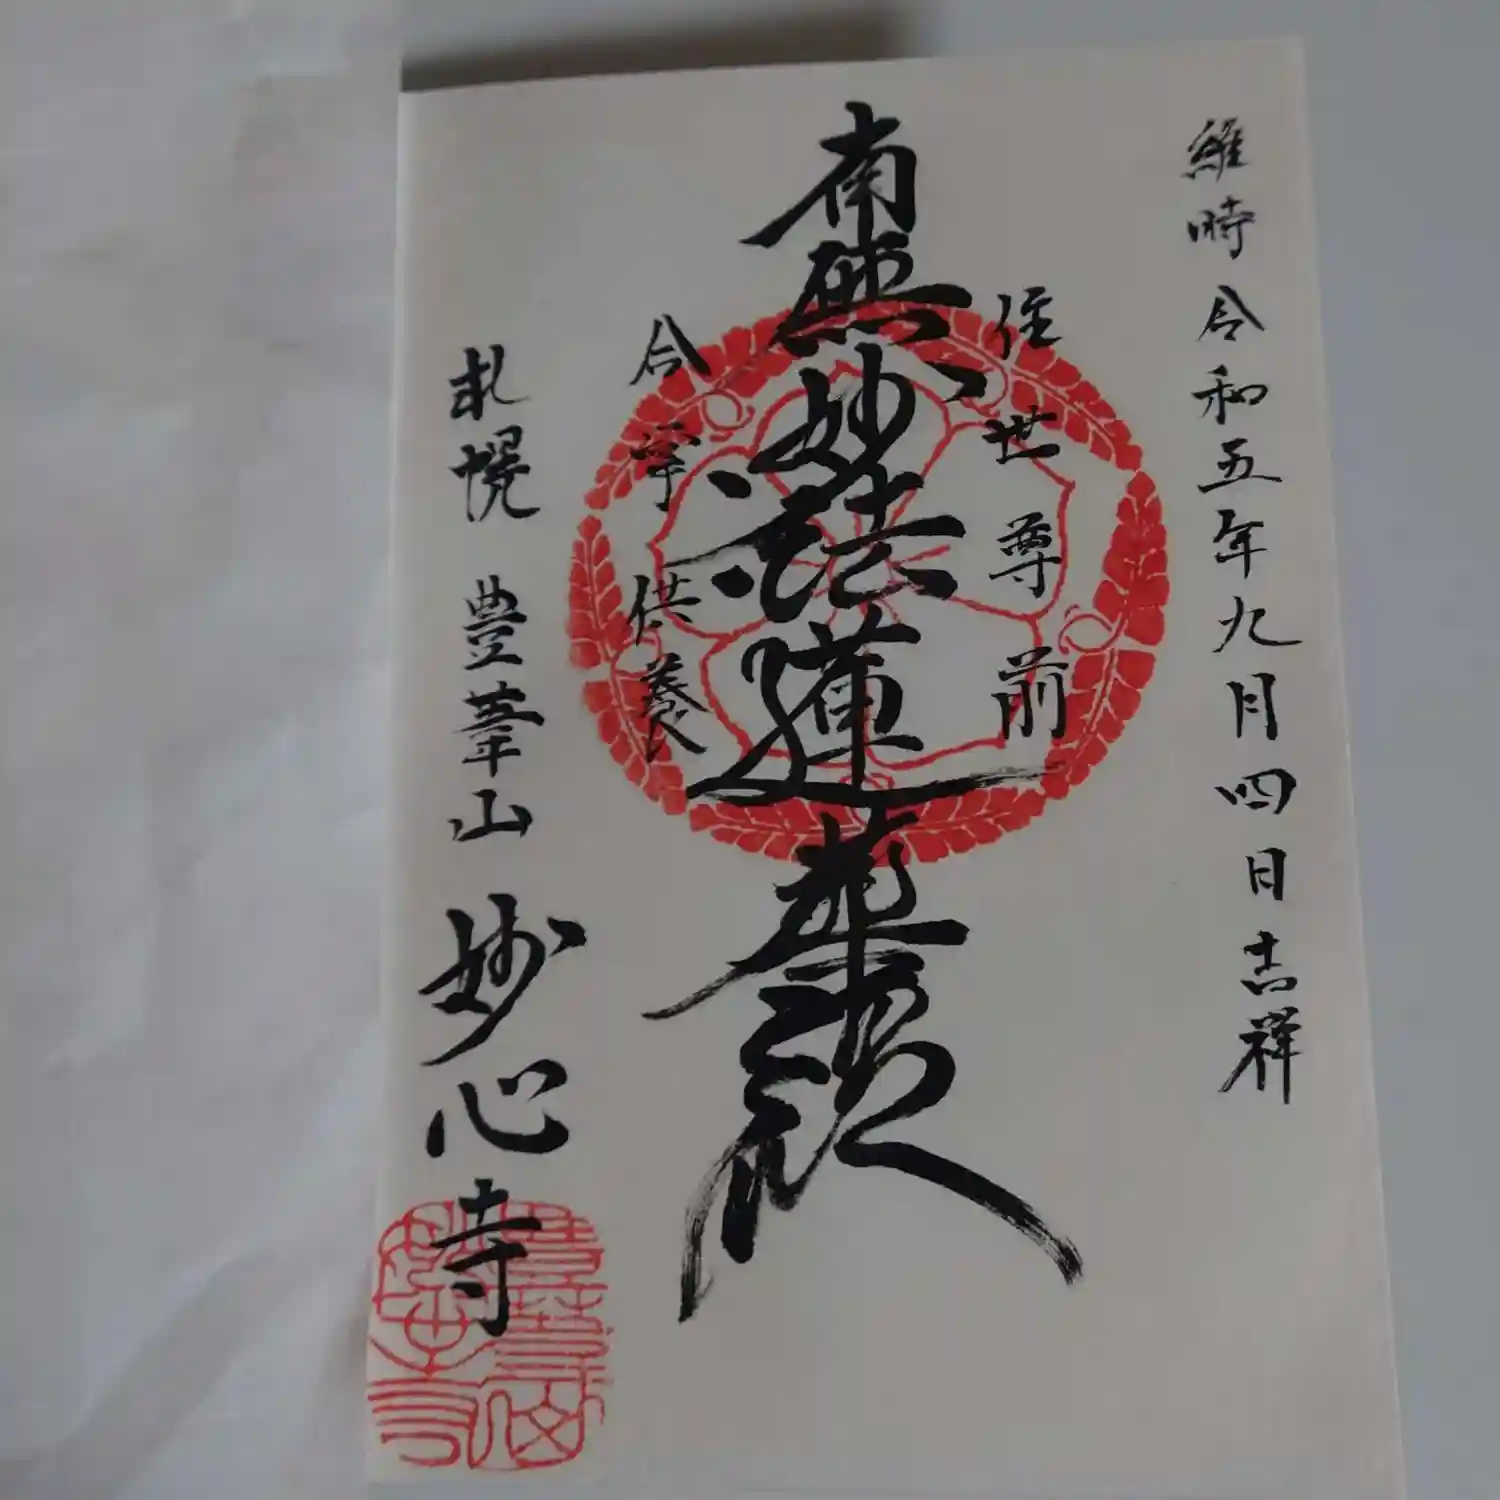 維時令和五年九月四日吉祥
住世尊前
南無妙法蓮華経
合掌供養
札幌 豊葦山 妙心寺